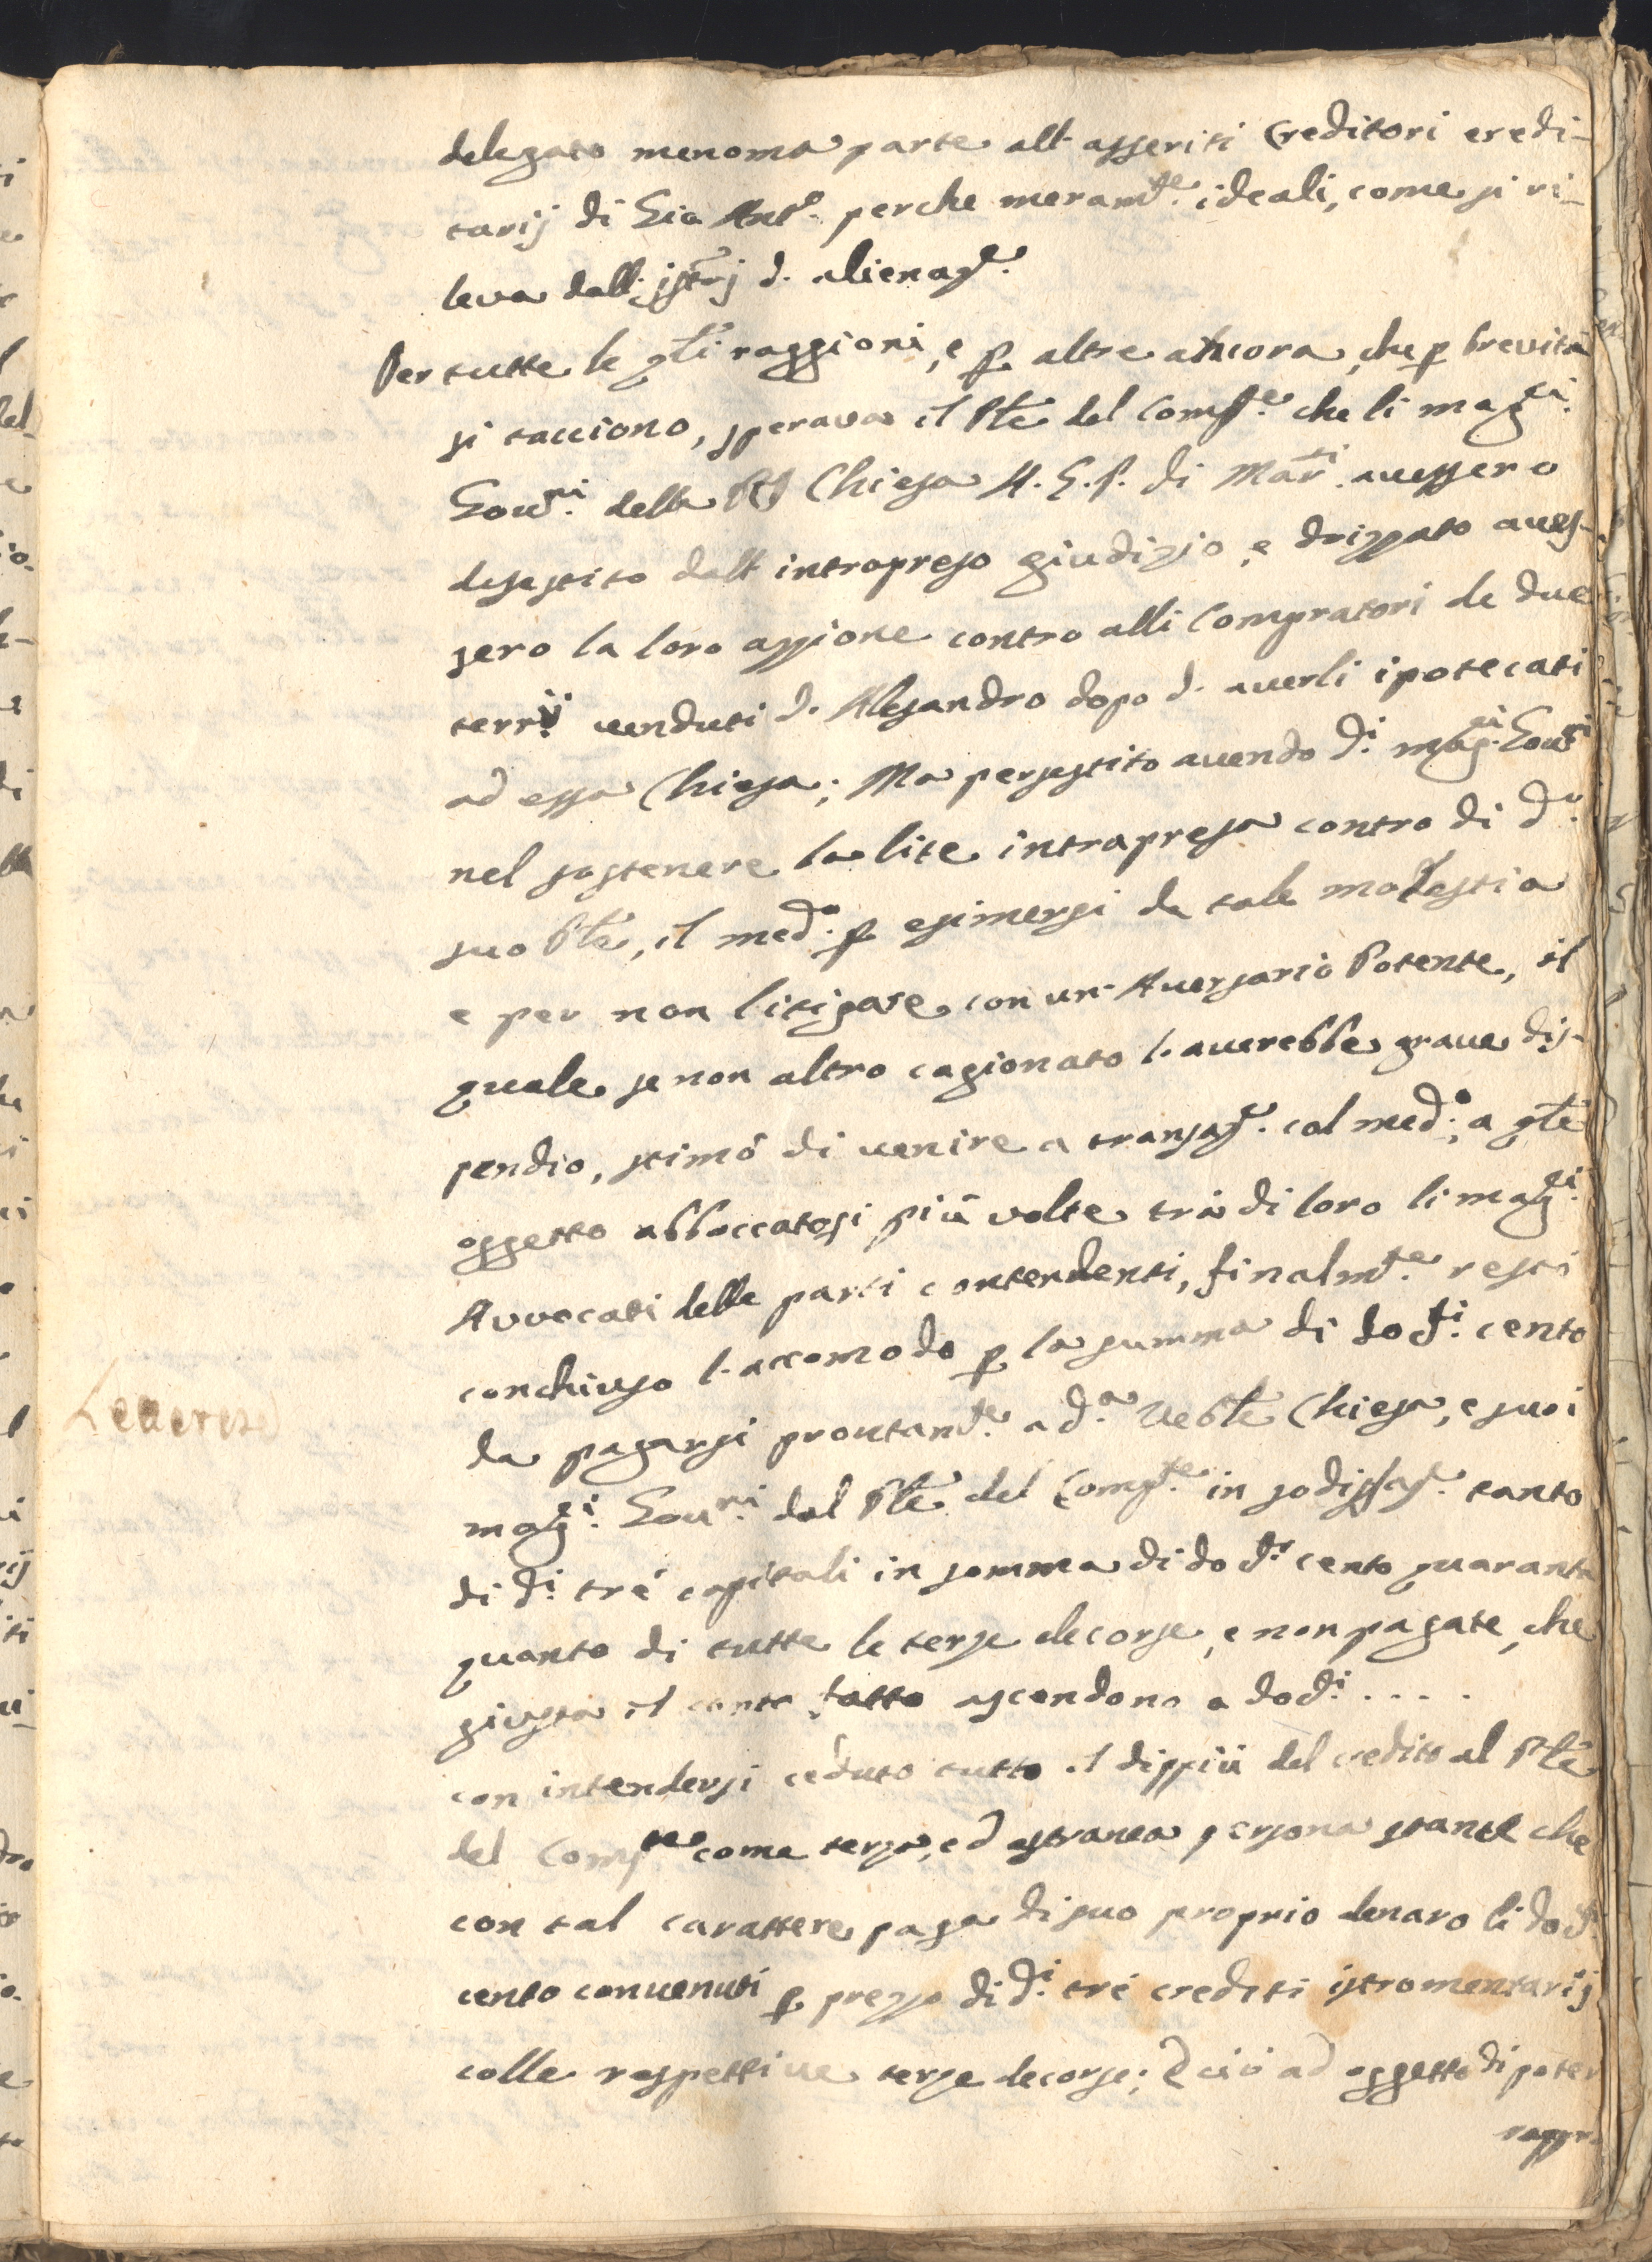 delegato menoma parte all' asseriti Creditori eredi-
tarij di Gio Ant.º perche meram.te ideali, come si ri-
leva dall' istr.ti d' alienaz.e
Per tutte le q.ti raggioni, e p altre ancora, che p brevità
si tacciono, sperava il Pñte del Comp.te che li mag.ci
Gov.ri della Chiesa A. G. P. di Mar.ti avessero
desistito dall' intrapreso giudizio, e drizzato aves-
sero la loro azzione contro alli Compratori de due
terr.ij venduti d' Alesandro dopo d' averli ipotecati
ad essa Chiesa; Ma persistito avendo d.i mag.ci Gov.ri
nel sostenere la lite intrapresa contro di d.o
suo Pñte, il med.o p esimersi da tale molestia
e per non litigare con un' Aversario Potente, il
quale se non altro cagionato l' averebbe grave dis-
pendio, stimò di venire a transaz.e col med.o; a q.te
oggetto abboccatosi più volte trà di loro li mag.ci
Avvocati delle parti contendenti, finalm.te restò
conchiuso l' accomodo p la summa di doc.ti cento
da pagarsi prontam.te a d.a Chiesa, e suoi
mag.ci Gov.ri dal Pñte del Comp.te in sodisfaz.e tanto
di d.i trè capitali in somma di doc.ti cento quaranta
quanto di tutte le terze decorse, e non pagate, che
giusta il conto fatto ascendono a doc.ti ....
con intendersi ceduto tutto il dippiù del credito al Pñte
del Comp.te come terza, ed estranea persona stante che
con tal carattere paga di suo proprio denaro li doc.ti
cento convenuti p prezzo di d.i trè crediti istromentarij
colle respettive terze decorse; E ciò ad oggetto di poter